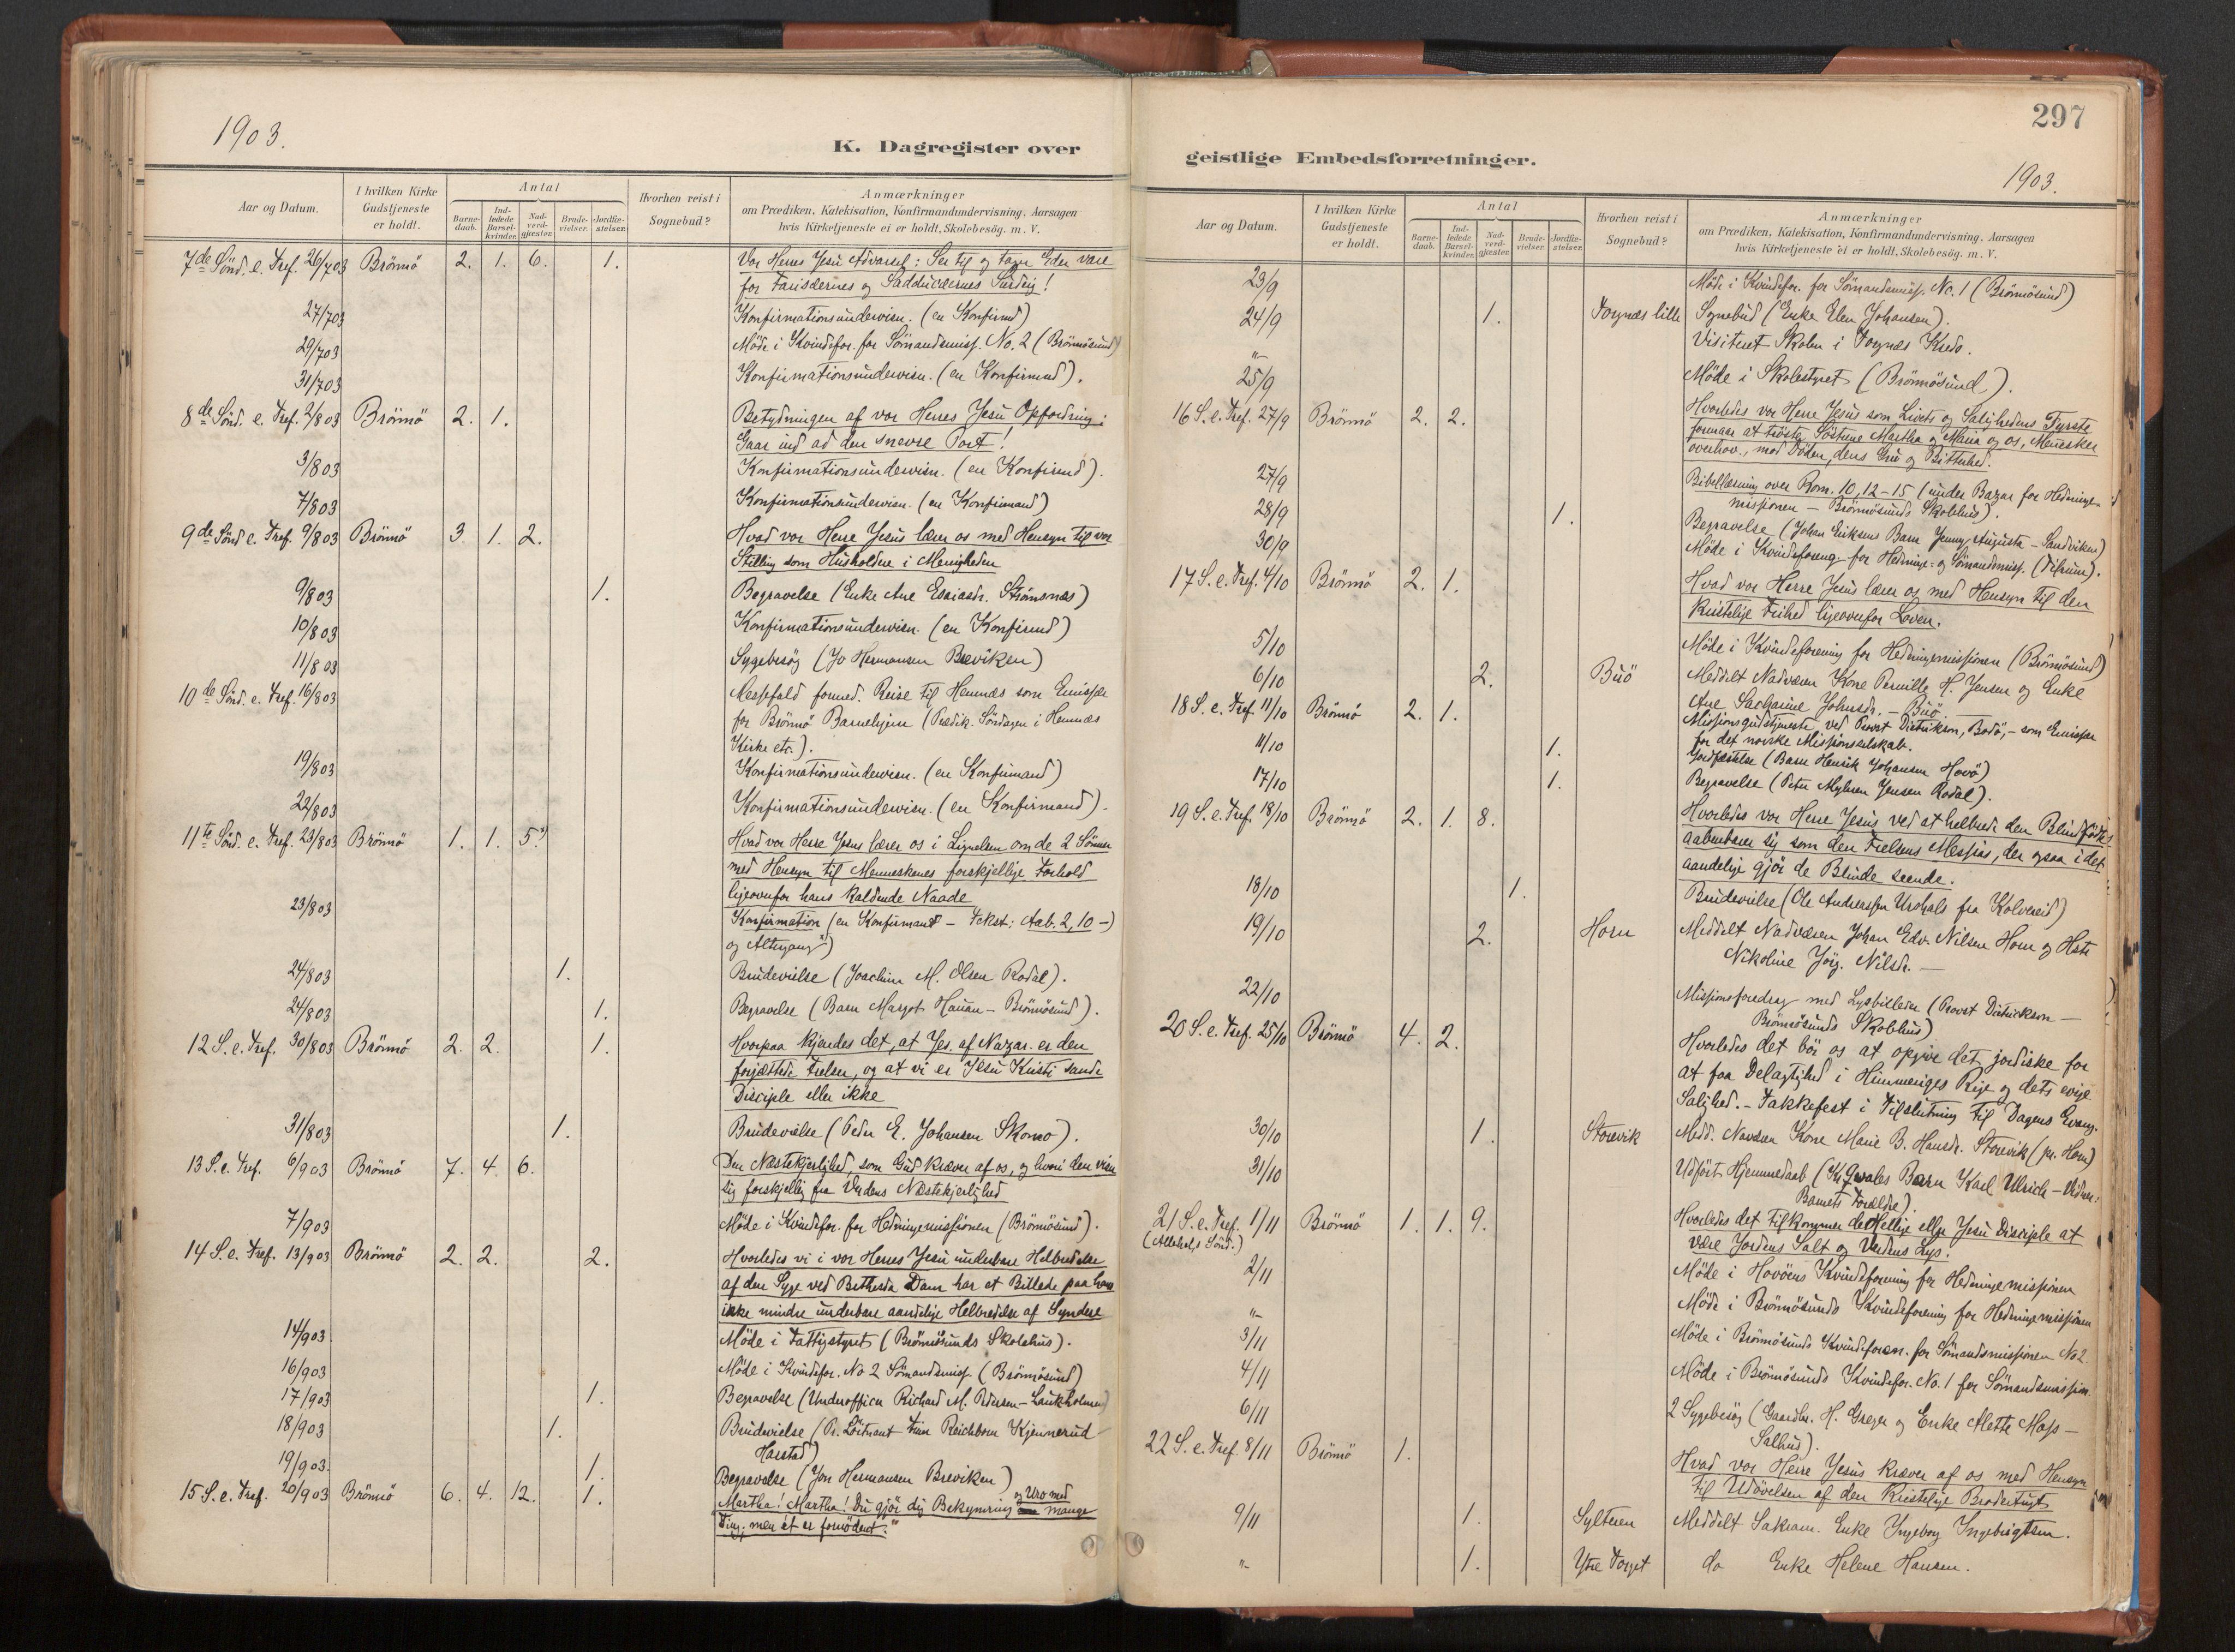 1903.
K. Dagregister over
Aar og Datum.
I hvilken Kirke
Gudstjeneste
er holdt.
Antal
Barne-
daab.
Ind-
ledede
Barsel-
kvinder.
Nad-
verd-
gjester.
Brude-
vielser.
Jordfæ-
stelser.
Hvorhen reist i
Sognebud?
Anmærkninger
om Prædiken, Katekisation, Konfirmandundervisning, Aarsagen
hvis Kirketjeneste ei er holdt, Skolebesög. m. V.
7de Sönd. e. Tref. 26/703 Brönnö 2. 1. 6. 1. Vor Herres Jesu Advarsel: Ser til og tager Eder vare
for Farisæernes og Sadducæernes Surdeig!
27/703 Konfirmationsundervisn. (en Konfirmd)
29/703 Möde i Kvindefor. for Sömandsmiss. No. 2 (Brönnösund)
31/703 Konfirmationsundervisn. (en Konfirmnd).
8de Sönd. e. Tref. 2/803 Brönnö 2. 1. Betydningen af vor Herres Jesu Opfordring:
Gaar ind ad den snevre Port!
3/803 Konfirmationsundervisn. (en Konfirmd).
7/803 Konfirmationsundervisn. (en Konfirmand)
9de Sönd e. Tref. 9/803 Brönnö 3. 1. 2. Hvad vor Herre Jesus lærer os med Hensyn til vor
Stilling som Husholdere i Menigheden
9/803 1. Begravelse (Enke Ane Esaiasdr. Strömsnæs)
10/803 Konfirmationsundervisn. (en Konfirmd)
11/803 Sygebesög (Jo Hermansen Breviken)
10de Sönd. e. Tref. 16/803 Messefald formed. Reise til Hemnæs som Emissær
for Brönnö Barnehjem (Prædik. Söndagen i Hemnæs
Kirke etc.).
19/803 Konfirmationsundervisn. (en Konfirmand)
22/803 Konfirmationsundervisn. (en Konfirmand).
11te Sönd. e. Tref. 23/803 Brönnö 1. 1. 5.*) Hvad vor Herre Jesus lærer os i Lignelsen om de 2 Sönner
med Hensyn til Menneskenes forskjellige Forhold
ligeoverfor hans kaldende Naade
23/803 Konfirmation (en Konfirmant – Tekst: Aab. 2, 10 –)
og Altergang*)
24/803 1. Brudevielse (Joachim M. Olsen Rodal).
24/803 1. Begravelse (Barn Margot Hauan – Brönnösund).
12 S. e. Tref. 30/803 Brönnö 2. 2. 1. Hvorpaa kjendes det, at Jes. af Nazar. er den
forjættede Frelser, og at vi er Jesu Kristi sande
Disciple eller ikke
31/803 1. Brudevielse (Peder E. Johansen Skomo).
13 S. e. Tref. 6/903 Brönnö 7. 4. 6. Den Næstekjerlighed, som Gud kræver af os, og hvori den viser
sig forskjellig fra Verdens Næstekjerlighed
7/903 Möde i Kvindefor. for Hedningemissionen (Brönnösund).
14 S. e. Tref. 13/903 Brönnö 2. 2. 2. Hvorledes vi i vor Herres Jesu underbare Helbredelse
af den Syge ved Bethesda Dam har et Billede paa hans
ikke mindre underbare aandelige Helbredelse af Syndere
14/903 Möde i Fattigstyret (Brönnösunds Skolehus).
16/903 Möde i Kvindefor. No 2 Sömandsmiss. (Brönnösund)
17/903 1. Begravelse (Underofficer Richard M. Pedersen – Laukholmen)
18/903 1. Brudevielse (Pr. Löitnant Finn Reichborn Kjennerud
Harstad)
19/903. 1. Begravelse (Jon Hermansen Breviken)
15 S. e. Tref. 20/903 Brönnö 6. 4. 12. 1. Martha! Martha! Du gjör dig Bekymring og Uro med mange
Ting; men ét er fornödent."
297
geistlige Embedsforretninger.
1903.
Aar og Datum.
I hvilken Kirke
Gudstjeneste
er holdt.
Antal
Barne-
daab.
Ind-
ledede
Barsel-
kvinder.
Nad-
verd-
gjester.
Brude-
vielser.
Jordfæ-
stelser.
Hvorhen reist i
Sognebud?
Anmærkninger
om Prædiken, Katekisation, Konfirmandundervisning, Aarsagen
hvis Kirketjeneste ei er holdt, Skolebesög. m. V.
23/9 Möde i Kvindefor. for Sömandsmiss. No. 1 (Brönnösund)
24/9 1. Torgnæs lille Sognebud (Enke Elen Johansen).
"– Visiteret Skolen i Torgnæs Kreds.
25/9 Möde i Skolestyret (Brönnösund).
16 S. e. Tref. 27/9 Brönnö 2. 2. Hvorledes vor Herre Jesus som Livets og Salighedens Fyrste
formaar at tröste Söstrene Martha og Maria og os, Mennesker
overhov., mod Döden, dens Gru og Bitterhed.
27/9 Bibellæsning over Rom. 10, 12–15 (under Bazar for Hedninge-
missionen – Brönnösunds Skolehus).
28/9 1. Begravelse (Johan Eriksens Barn Jenny Augusta – Sandviken)
30/9 Möde i Kvindeforeng. for Hedninge- og Sömandsmiss. (Tilrum).
17 S. e. Tref. 4/10 Brönnö 2. 1. Hvad vor Herre Jesus lærer os med Hensyn til den
kristelige Frihed ligeoverfor Loven.
5/10 Möde i Kvindeforening for Hedningemissionen (Brönnösund)
6/10 2. Buö Meddelt Nadveren Kone Pernille H. Jensen og Enke
Ane Sacharine Johnsdr. – Buö
18 S. e. Tref 11/10 Brönnö 2. 1. Missionsgudstjeneste ved Provst Distrikson, Bodö, – som Emissær
for det norske Missionsselskab.
11/10 1. Jordfæstelse (Barn Henrik Johansen Hovö)
17/10 1. Begravelse (Peter Myhren Jensen Rodal).
19 S. e. Tref. 18/10 Brönnö 2. 1. 8. Hvorledes vor Herre Jesus ved at helbrede den Blindfödte
aabenbarer sig som den Frelsens Messias, der ogsaa i det
aandelige gjör de Blinde seende.
18/10 1. Brudevielse (Ole Andreassen Urshals fra Kolvereid)
19/10 2. Horn Meddelt Nadveren Johan Edv. Nilsen Horn og Hstr
Nikoline Jörg. Nilsdr. –
22/10 Missionsforedrag med Lysbilleder (Provst Distrikson –
Brönnösunds Skolehus)
20 S. e. Tref. 25/10 Brönnö 4. 2. Hvorledes det bör os at opgive det jordiske for
at faa Delagtighed i Himmeriges Rige og dets evige
Salighed. – Takkefest i Tilslutning til Dagens Evang.
30/10 1. Storevik Medd. Navderen Kone Marie B. Hansdr. Storevik (pr. Horn)
31/10 Udfört Hjemmedaab (Kr. Qvales Barn Karl Ulrich – Vidner:
Barnets Forældre).
21 S. e. Tref. 1/11 Brönnö 1. 1. 9. Hvorledes det tilkommer de Hellige eller Jesu Disciple at
(Allehelgs Sönd.) være Jordens Salt og Verdens Lys.
2/11 Möde i Hovöens Kvindeforening for Hedningemissionen
"– Möde i Brönnösunds Kvindeforening for Hedningemissionen
3/11 Möde i Brönnösunds Kvindeforen. for Sömandsmissionen No 2.
4/11 Möde i Brönnösunds Kvindefor. No. 1 for Sömandsmission.
6/11 2 Sygebesög (Gaardbr. H. Greger og Enke Mette Moss –
Salhus).
22 S. e. Tref. 8/11 Brönnö 1. Hvad vor Herre Jesus kræver af os med Hensyn
til Udövelsen af den kristelige Brodertugt
9/11 1. Sylteren Meddelt Sakram. Enke Ingeborg Ingebrigtsen.
"– 1. Ytre Torget do Enke Helene Hansen.